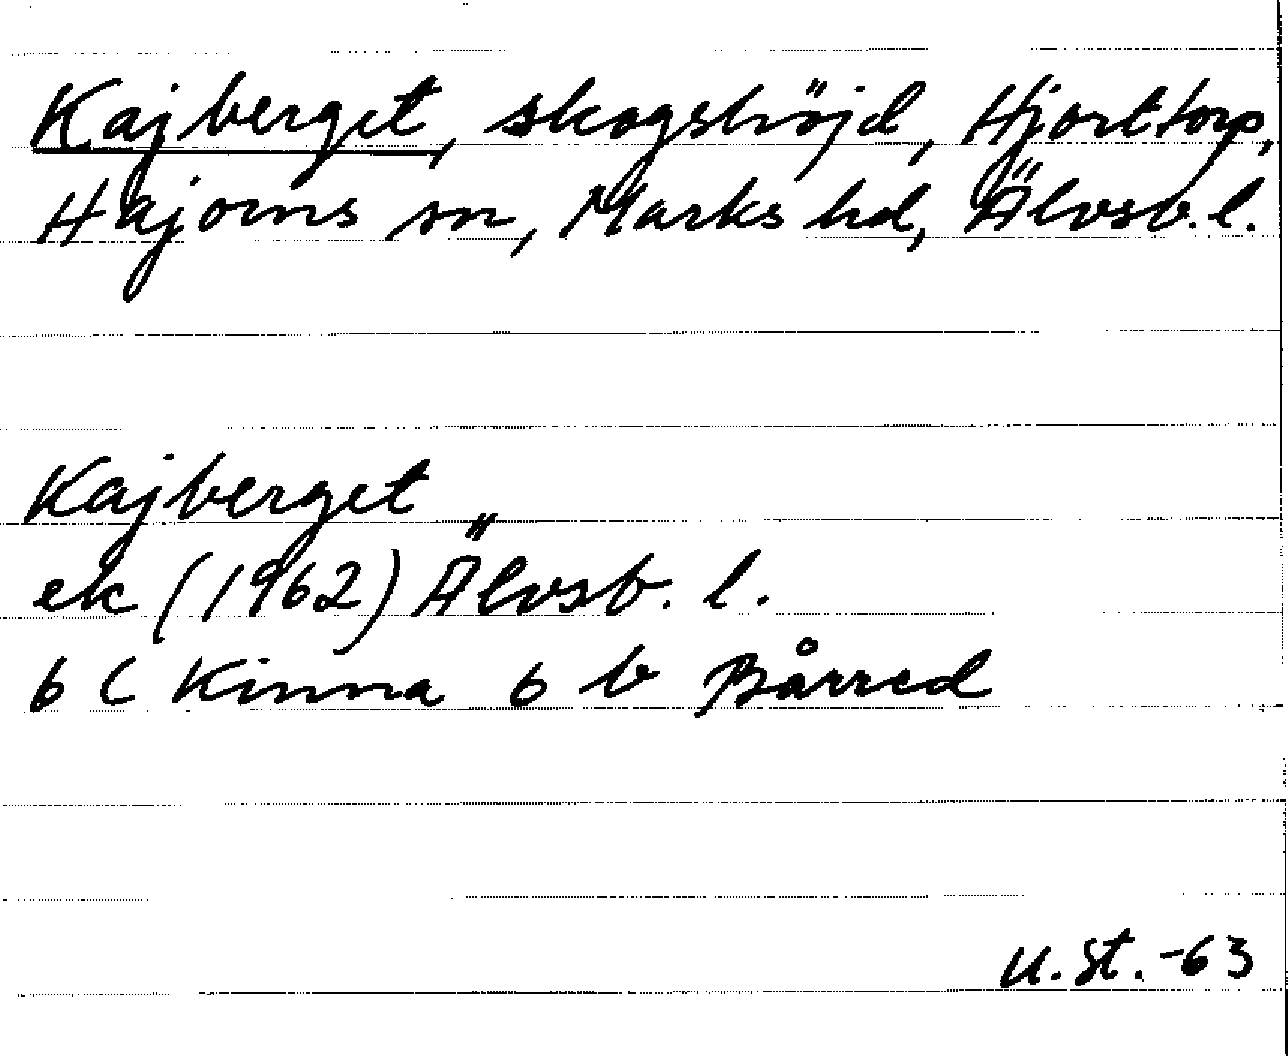 Kajberget, skogshöjd, Hjorttorp,
Hajoms sn, Marks hd, Älvsb. l.
Kajberget
ek (1962) Älvsb. l.
6 C Kinna 6 b Bårred
U. St. -63